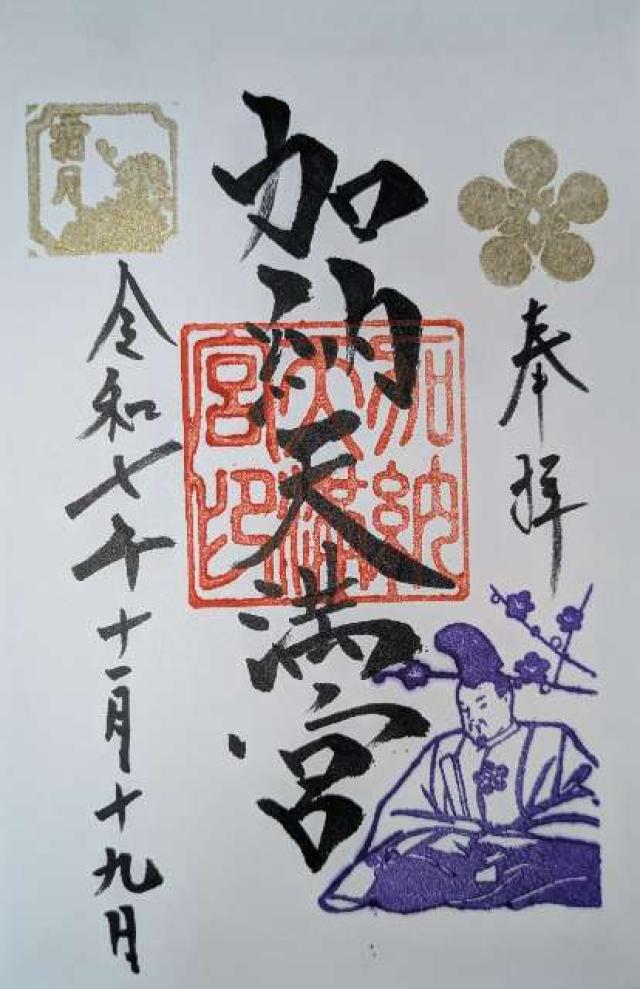 奉拝
加納天満宮
加納天満宮印
令和七年十一月十九日
霜月